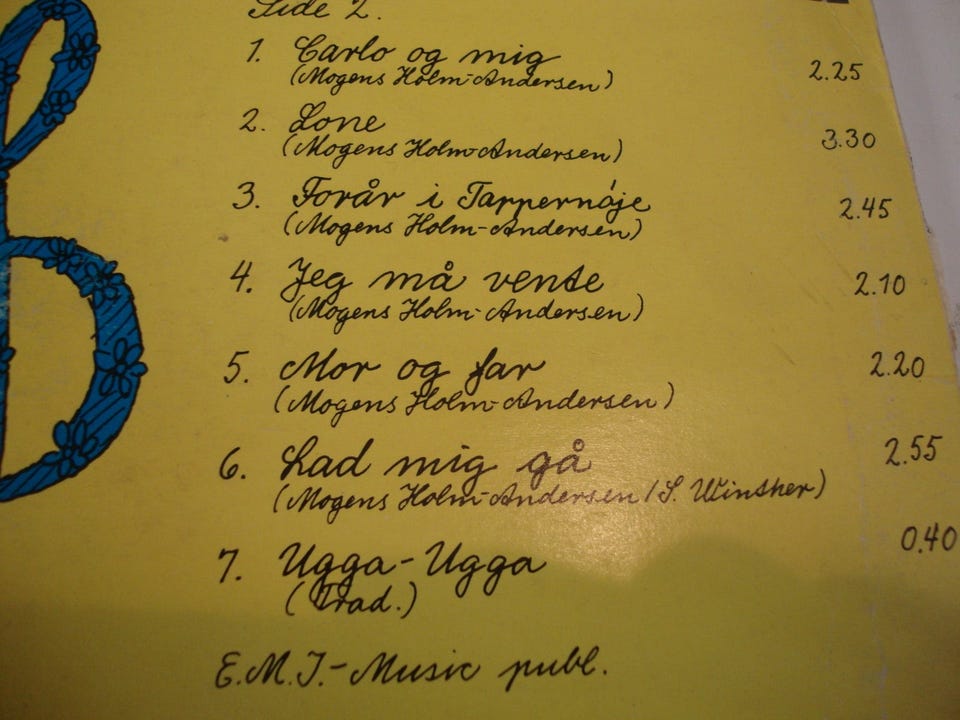 Side 2.
1. Carlo og mig 2.25
(Mogens Holm-Andersen)
2. Lone 3.30
(Mogens Holm-Andersen)
3. Forår i Tappernøje 2.45
(Mogens Holm-Andersen)
4. Jeg må vente 2.10
(Mogens Holm-Andersen)
5. Mor og far 2.20
(Mogens Holm-Andersen)
6. Lad mig gå 2.55
(Mogens Holm-Andersen/S. Winther)
7. Ugga-Ugga 0.40
(Trad.)
E.M.I.-Music publ.